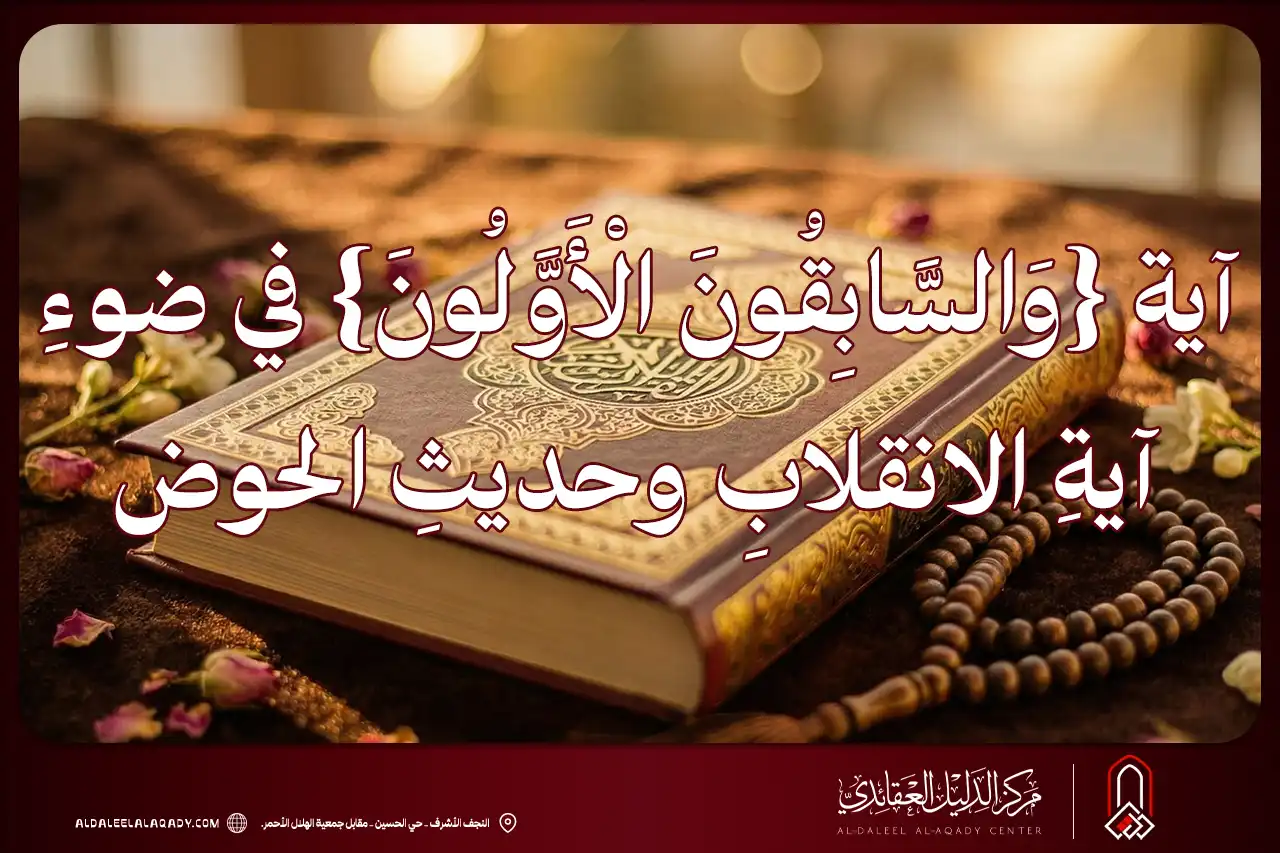 آية {وَالسَّابِقُونَ الْأَوَّلُونَ} في ضوءِ
آيةِ الانقلابِ وحديثِ الحوض
مركز الدليل العقائدي
AL-DALEEL AL-AQADY CENTER
النجف الأشرف - حي الحسين - مقابل جمعية الهلال الأحمر.
ALDALEELALAQADY.COM